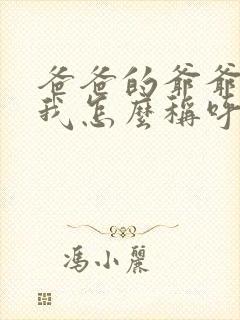 爸爸的爷爷
我怎麼稱呼
馮小麗